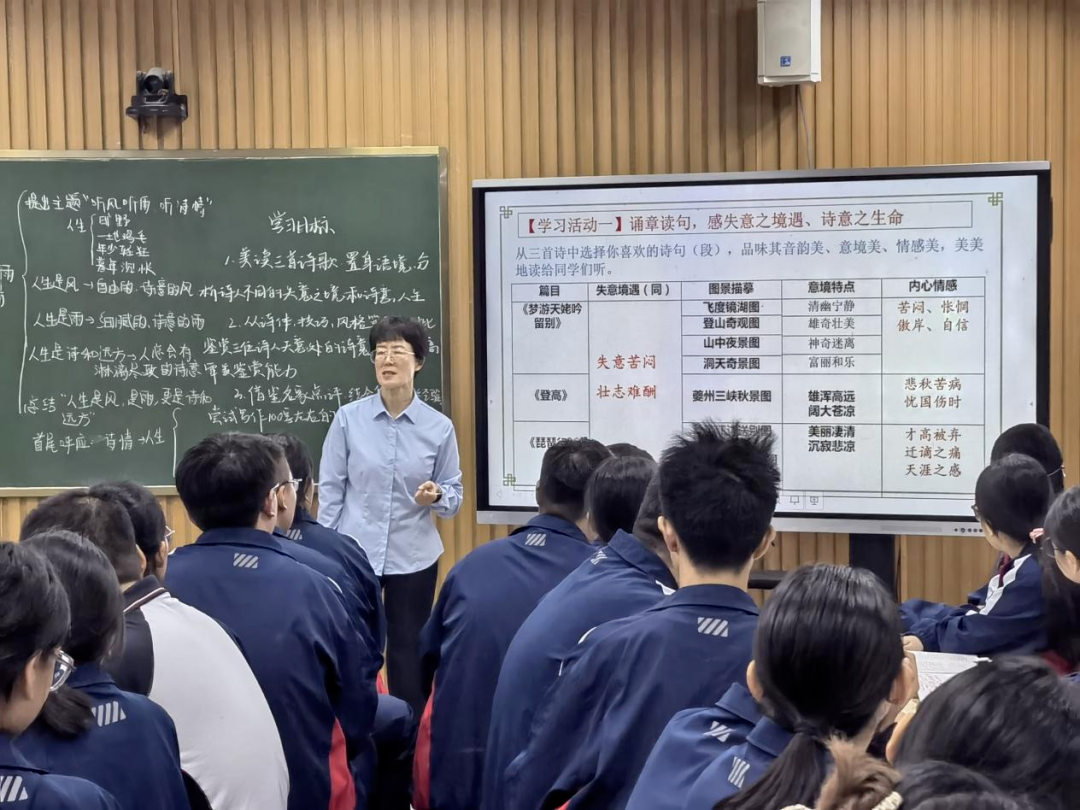 提出主题"听风听雨 听诗情"
人生
旷野
一地鸡毛
年少轻狂
青年
人生是风→自由的、诗意的风
人生是雨→细腻的、诗意的雨
人生是诗和远方→人总会有
淋漓尽致的诗意
总结"人生是风,是雨,更是诗和
远方"
首尾呼应:诗情→人生
学习目标
1.美读三首诗歌 置身语境,分
析诗人不同的失意之境和诗意人生
2.从诗体、技巧、风格
鉴赏三位诗人失意处的诗意 高
审美鉴赏能力
3.借鉴名家点评
尝试写作100字左右的
【学习活动一】诵章读句,感失意之境遇、诗意之生命
从三首诗中选择你喜欢的诗句(段),品味其音韵美、意境美、情感美,美美
地读给同学们听。
篇目 失意境遇(同) 图景描摹 意境特点 内心情感
《梦游天姥吟
留别》
失意苦闷
壮志难酬
飞度镜湖图 清幽宁静
登山奇观图 雄奇壮美
山中夜景图 神奇迷离
洞天奇景图 富丽和乐
苦闷、怅惘
傲岸、自信
《登高》 夔州三峡秋景图 雄浑高远
阔大苍凉
悲秋苦病
忧国伤时
《琵琶
美丽凄清
沉寂悲凉
才高被弃
迁谪之痛
天涯之感